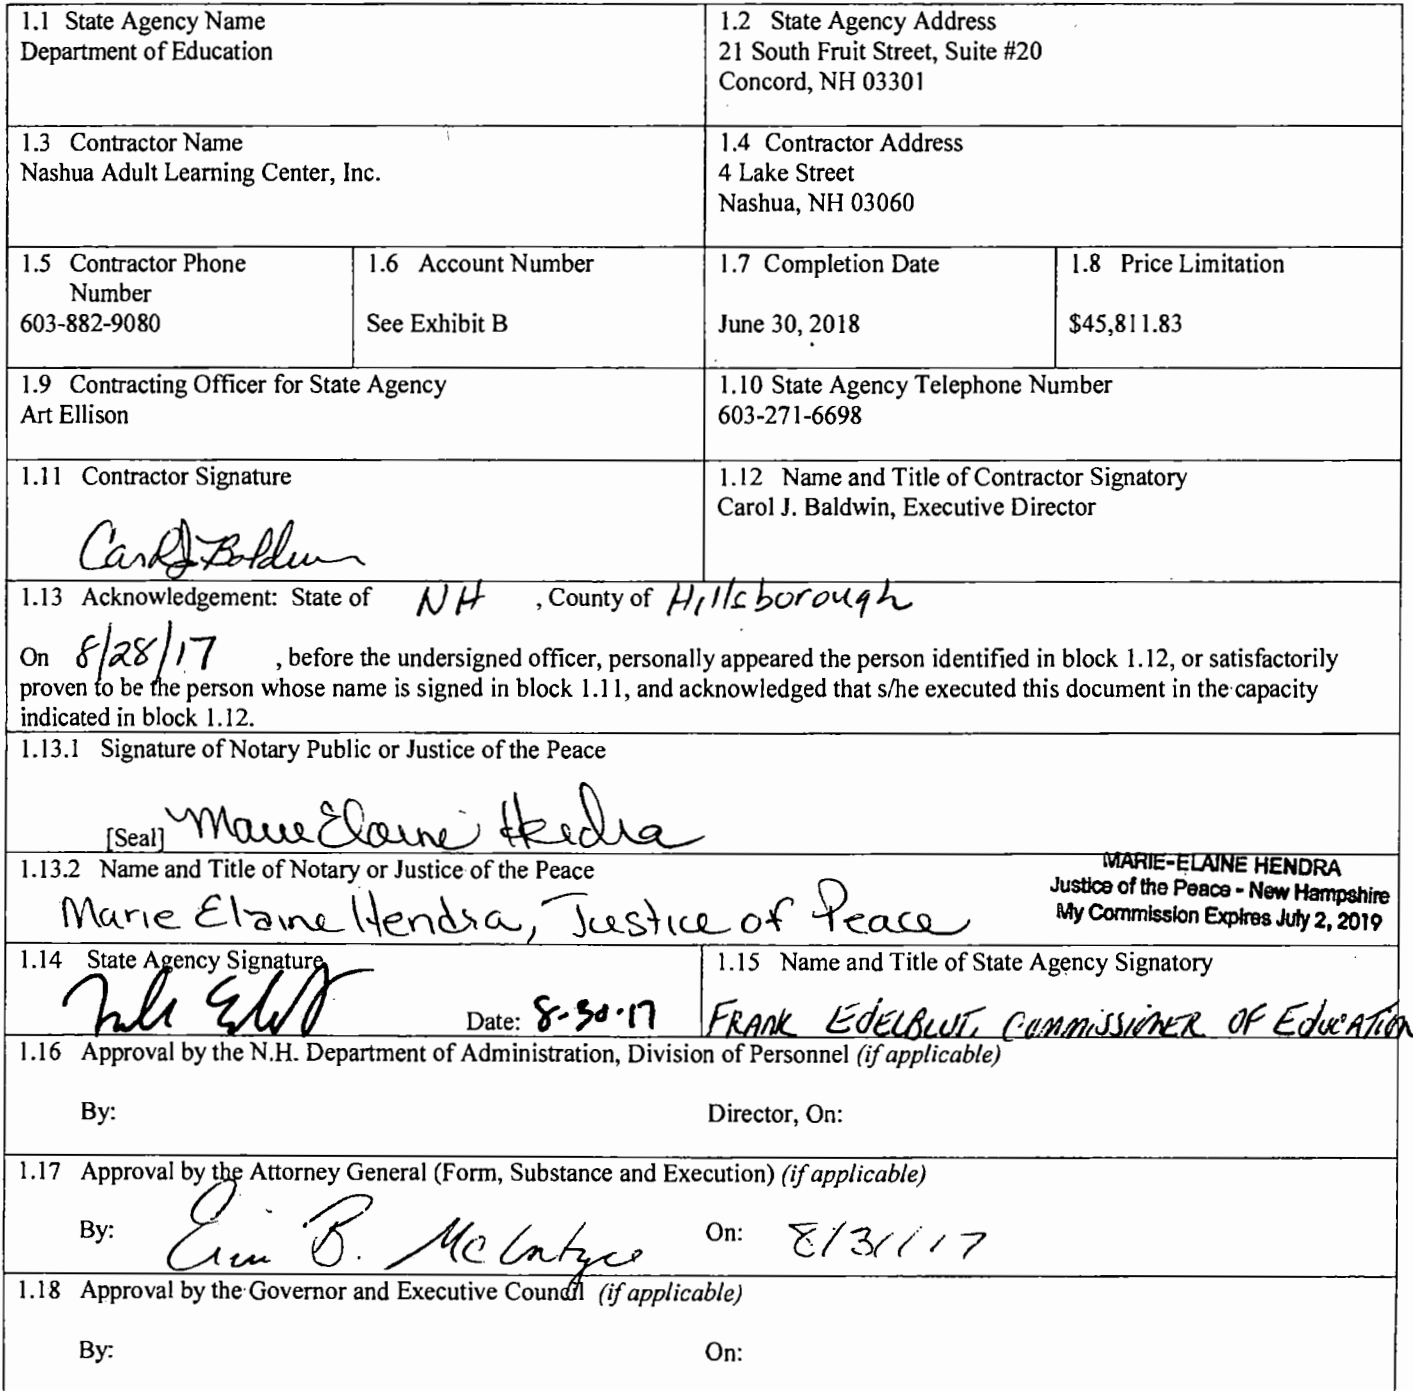 1.1 State Agency Name
Department of Education
1.2 State Agency Address
21 South Fruit Street, Suite #20
Concord, NH 03301
1.3 Contractor Name
Nashua Adult Learning Center, Inc.
1.4 Contractor Address
4 Lake Street
Nashua, NH 03060
1.5 Contractor Phone
Number
603-882-9080
1.6 Account Number
See Exhibit B
1.7 Completion Date
June 30, 2018
1.8 Price Limitation
$45,811.83
1.9 Contracting Officer for State Agency
Art Ellison
1.10 State Agency Telephone Number
603-271-6698
1.11 Contractor Signature
Carol J Baldwin
1.12 Name and Title of Contractor Signatory
Carol J. Baldwin, Executive Director
1.13 Acknowledgement: State of NH , County of Hillsborough
On 8/28/17 , before the undersigned officer, personally appeared the person identified in block 1.12, or satisfactorily
proven to be the person whose name is signed in block 1.11, and acknowledged that s/he executed this document in the capacity
indicated in block 1.12.
1.13.1 Signature of Notary Public or Justice of the Peace
[Seal] Marie Elaine Hendra
1.13.2 Name and Title of Notary or Justice of the Peace
Marie Elaine Hendra, Justice of Peace
MARIE-ELAINE HENDRA
Justice of the Peace - New Hampshire
My Commission Expires July 2, 2019
1.14 State Agency Signature
Date: 8-30-17
1.15 Name and Title of State Agency Signatory
FRANK EDELBLUT, COMMISSIONER OF EDUCATION
1.16 Approval by the N.H. Department of Administration, Division of Personnel (if applicable)
By: Director, On:
1.17 Approval by the Attorney General (Form, Substance and Execution) (if applicable)
By: Erin B. McIntyre On: 8/31/17
1.18 Approval by the Governor and Executive Council (if applicable)
By: On: